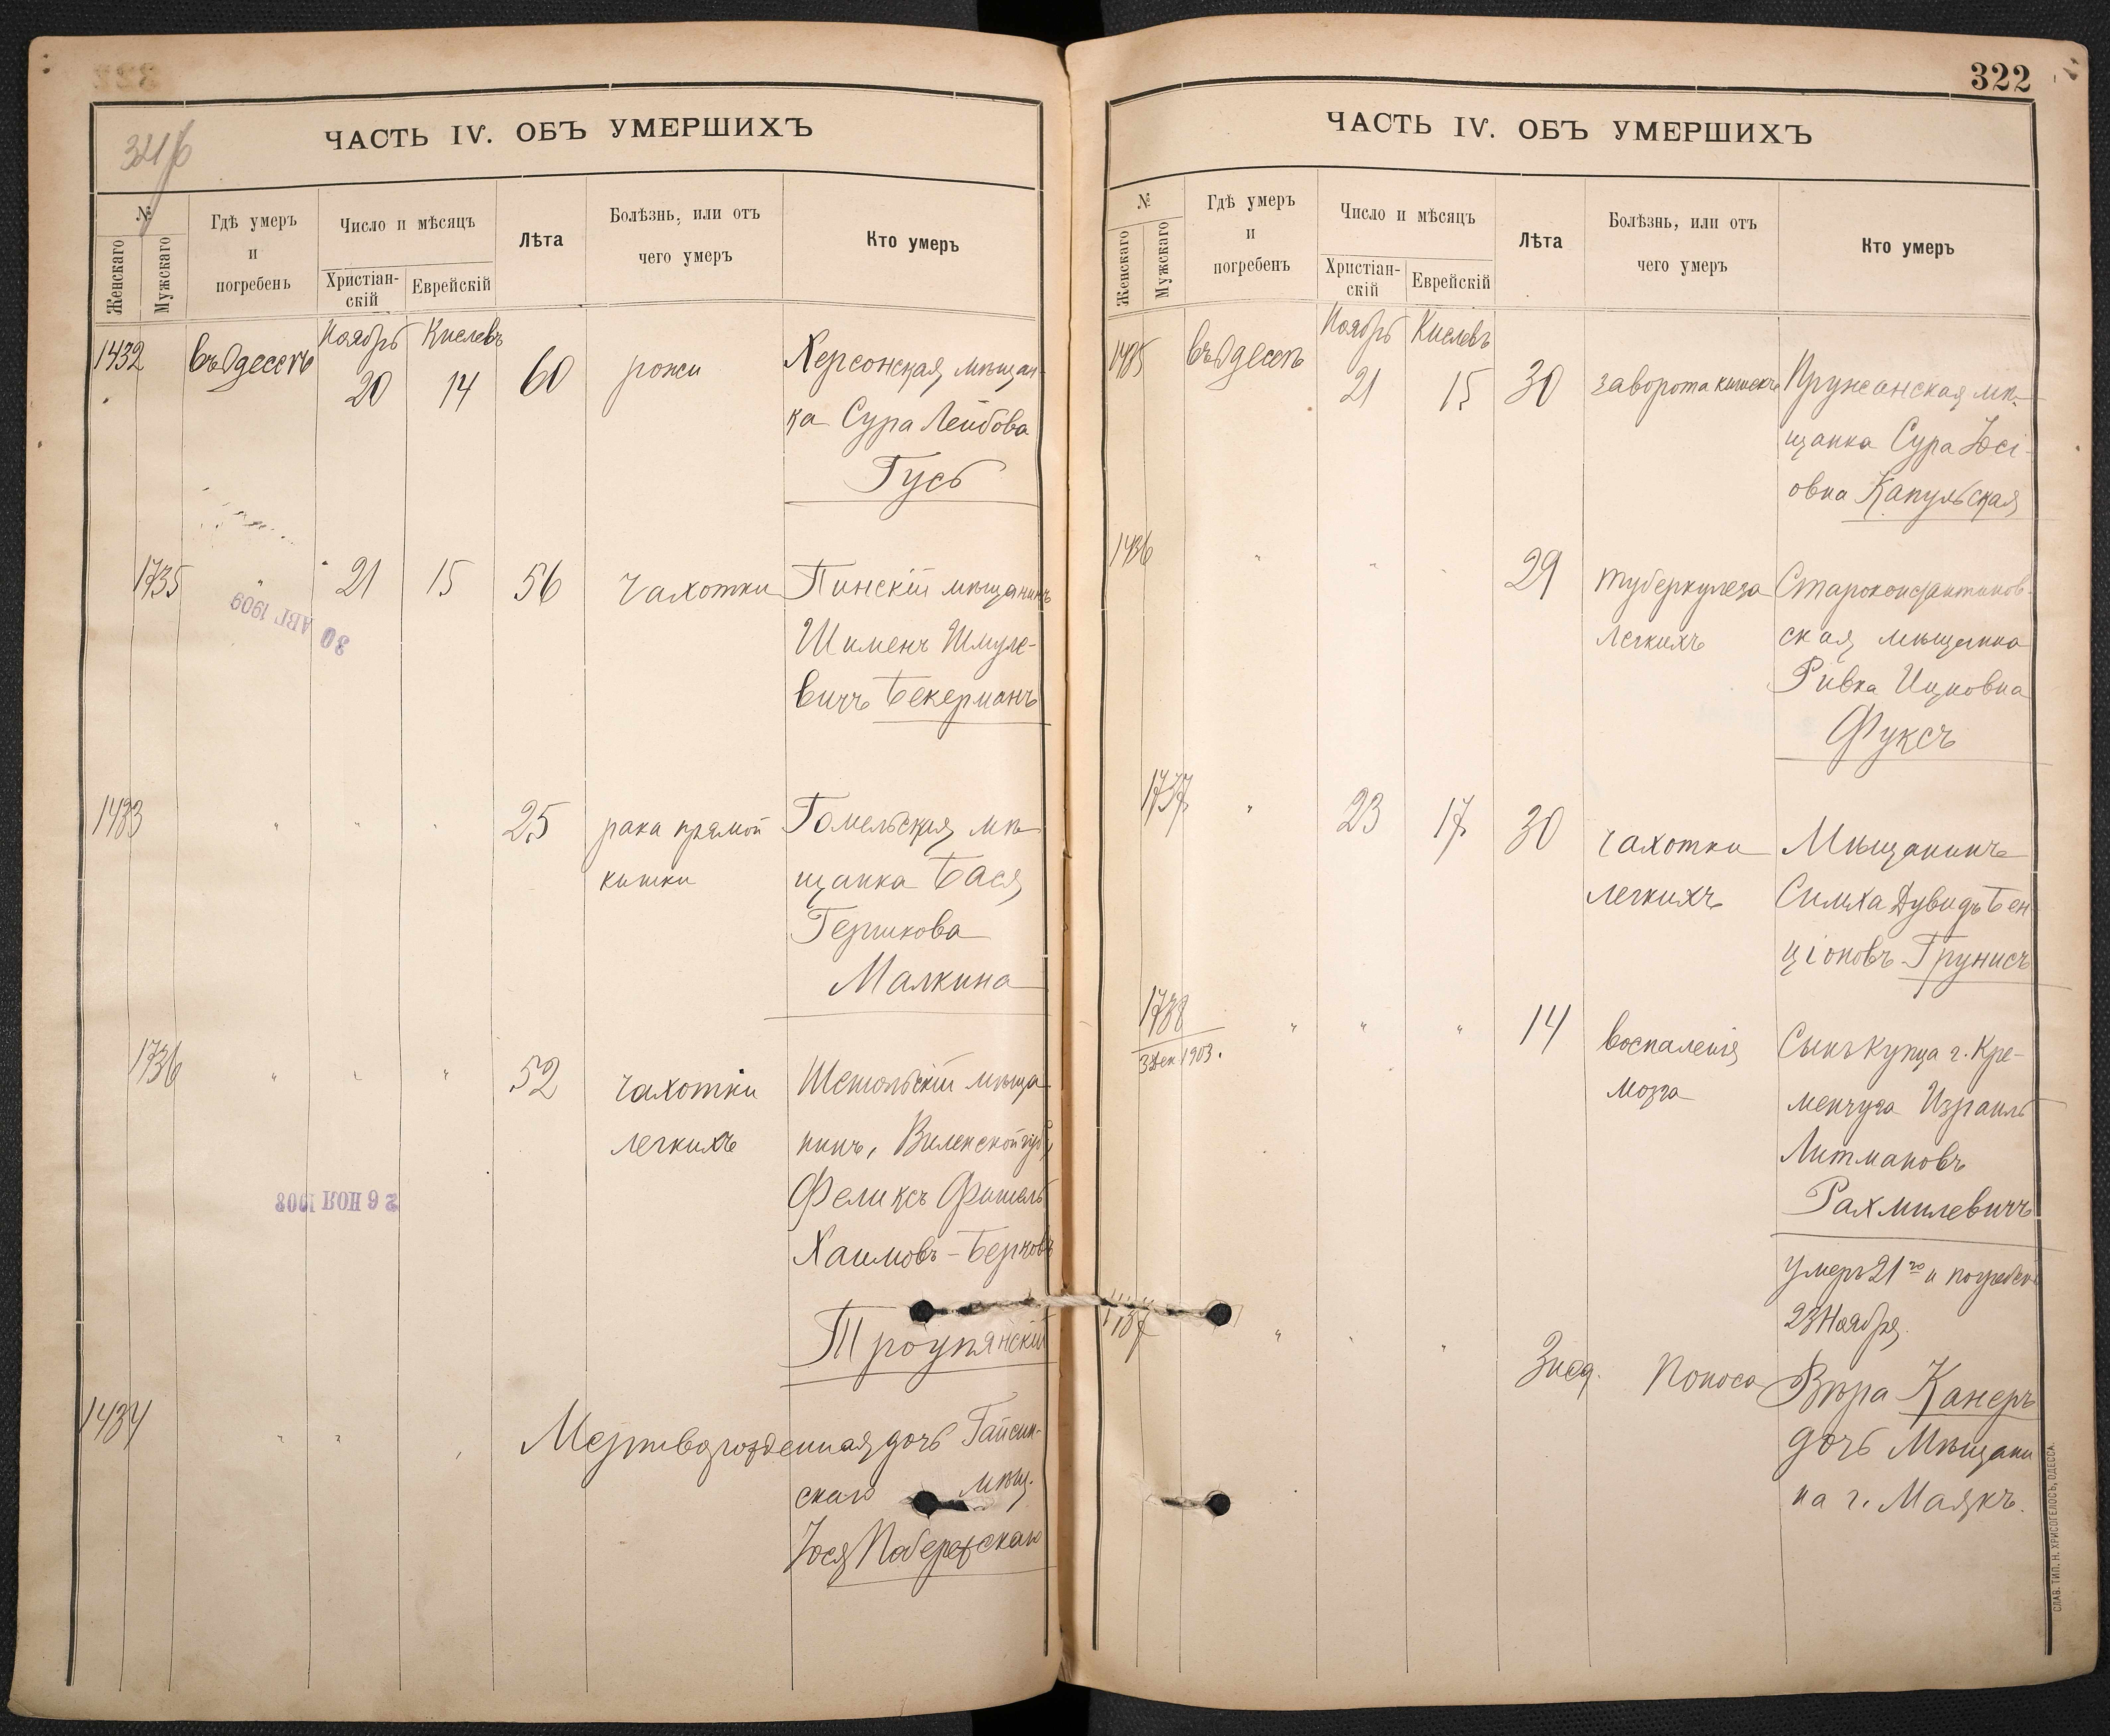 322
ЧАСТЬ IV. ОБЪ УМЕРШИХЪ
№
Женскаго
Мужскаго
Гдѣ умеръ
и
погребенъ
Число и мѣсяцъ
Христіан-
скій
Еврейскій
Лѣта
Болѣзнь, или отъ
чего умеръ
Кто умеръ
1432 въ Одессѣ Ноябрь 20 Кислевъ 14 60 рожи Херсонская мѣщан-
ка Сура Лейбова
Гусь
1735 " 21 15 56 чахотки Пинскій мѣщанинъ
Шименъ Шмуле-
вичъ Бекерманъ
30 АВГ 1909
1433 " " " 25 рака прямой Гомельская мѣ-
кишки щанка Бася
Гершкова
Малкина
1736 " " " 52 чахотки мѣща-
легкихъ нинъ, Виленской губ.,
Феликсъ Фишель
Хаимовъ-Берковъ
26 НОЯ 1903
1434 " " " Мертворожденная дочь Гайсин-
скаго мѣщ.
Іося Побережскаго
ЧАСТЬ IV. ОБЪ УМЕРШИХЪ
№
Женскаго
Мужскаго
Гдѣ умеръ
и
погребенъ
Число и мѣсяцъ
Христіан-
скій
Еврейскій
Лѣта
Болѣзнь, или отъ
чего умеръ
Кто умеръ
1435 въ Одессѣ Ноябрь 21 Кислевъ 15 30 заворота кишекъ Пружанская мѣ-
щанка Сура Іосі-
овна Капульская
1436 " " " 29 туберкулеза Староконстантинов-
легкихъ ская мѣщанка
Ривка Ицковна
Фуксъ
1737 " 23 17 30 чахотки Мѣщанинъ
легкихъ Симха Дувидъ Бен-
ціоновъ Грунисъ
1738 " " " 14 воспаленія Сынъ купца г. Кре-
3 Дек 1903. мозга менчуга Израиль
Литмановъ
Рахмилевичъ
умеръ 21го и погребенъ
23 Ноября.
1437 " " " 3 нед. поноса Вѣра Канеръ
дочь Мѣщани
на г. Маякъ.
СЛАВ. ТИП. Н. ХРИСОГЕЛОСЪ, ОДЕССА.